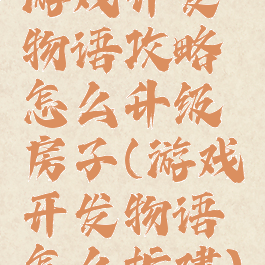 游戏开发
物语攻略
怎么升级
房子(游戏
开发物语
怎么拆建)